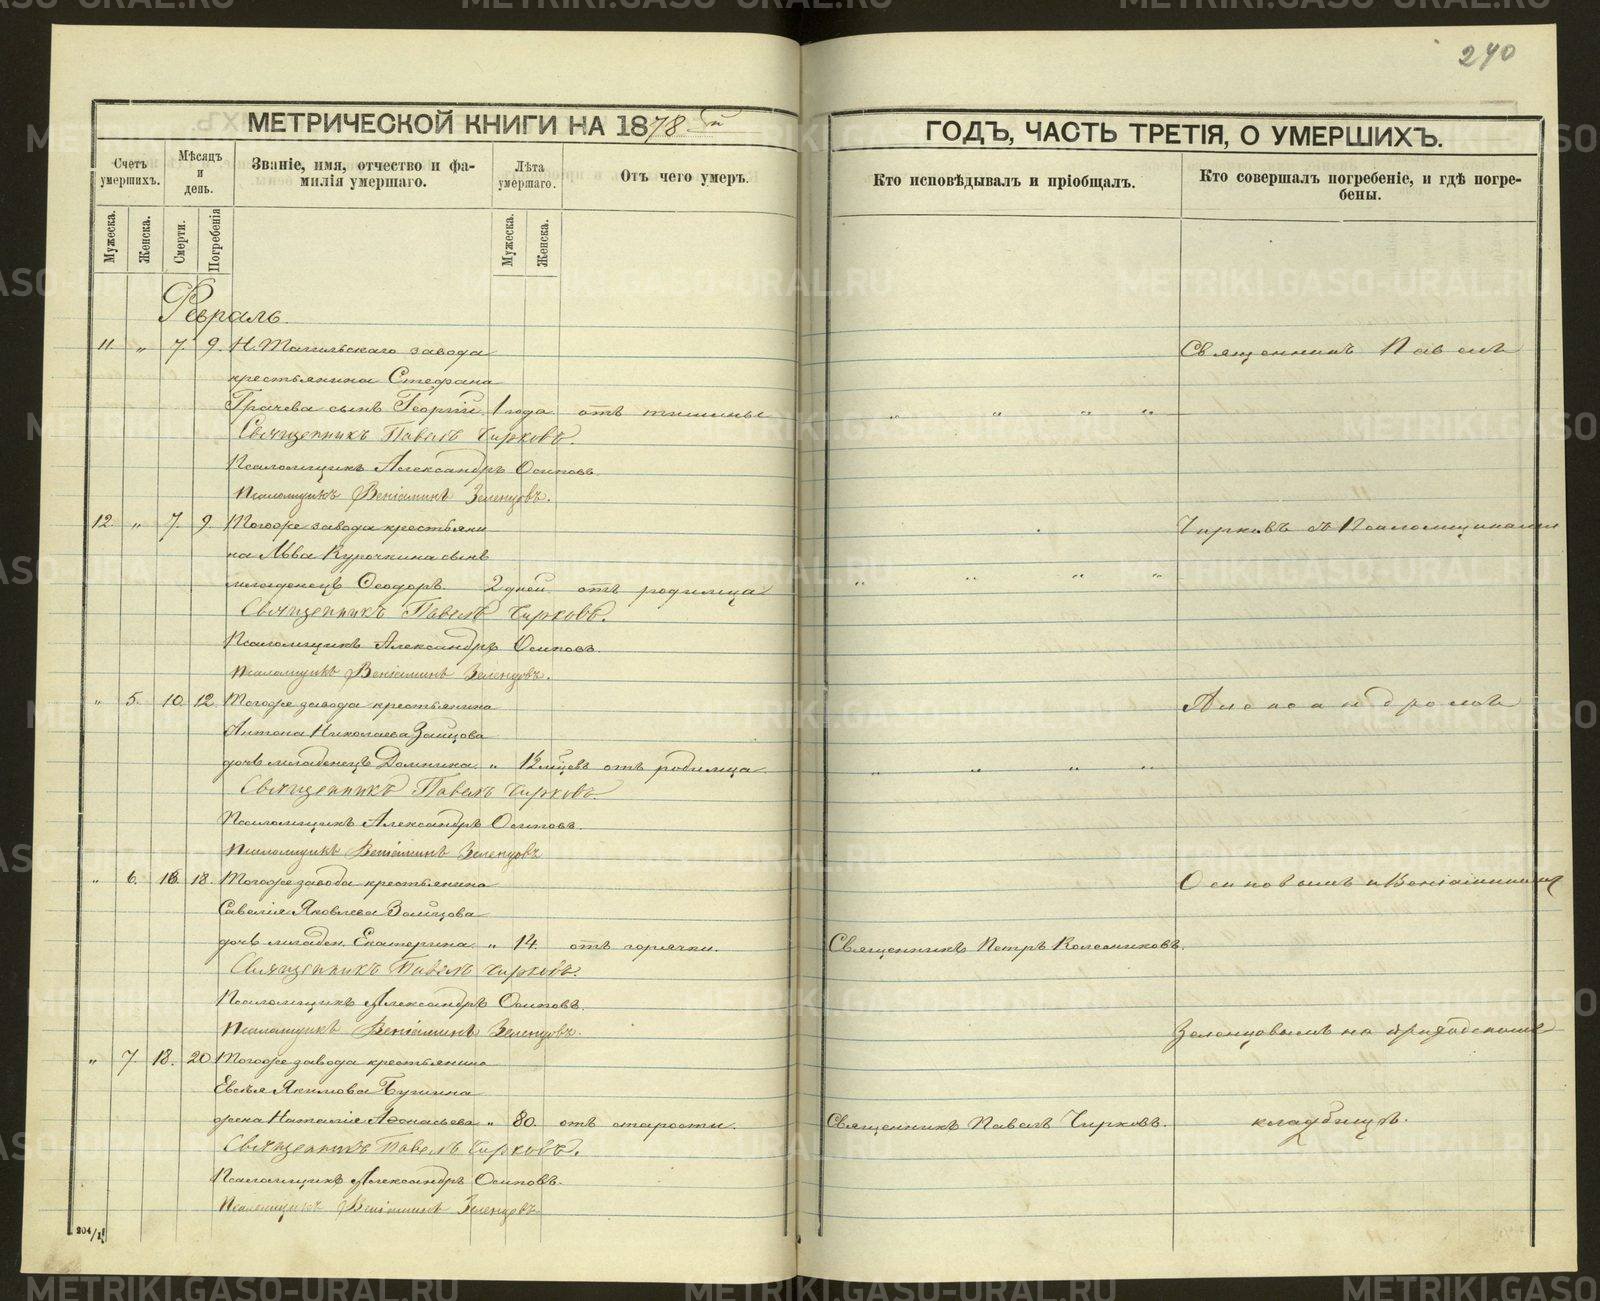 240
МЕТРИЧЕСКОЙ КНИГИ НА 1878 ой
ГОДЪ, ЧАСТЬ ТРЕТІЯ, О УМЕРШИХЪ.
Счетъ умершихъ.
Мѣсяцъ и день.
Званіе, имя, отчество и фа-
милія умершаго.
Лѣта умершаго.
Отъ чего умеръ.
Кто исповѣдывалъ и пріобщалъ.
Кто совершалъ погребеніе, и гдѣ погре-
бены.
Мужеска.
Женска.
Смерти.
Погребенія
Мужеска.
Женска.
Февраль.
11. „ 7. 9. Н. Тагильскаго завода
Священникъ Павелъ
крестьянина Стефана
Грачева сынъ Георгій 1 года отъ
„ „ „ „
Священникъ Павелъ Чирковъ.
Псаломщикъ Александръ Осиповъ.
Псаломщикъ Веніаминъ Зеленцовъ.
12. „ 7. 9. Тогоже завода крестьяни
Чирковъ съ Псаломщиками
на Льва Курочкина сынъ
младенецъ Ѳеодоръ. 2 дней отъ родимца
„ „ „ „
Священникъ Павелъ Чирковъ.
Псаломщикъ Александръ Осиповъ.
Псаломщикъ Веніаминъ Зеленцовъ.
„ 5. 10. 12. Тогоже завода крестьянина
Александромъ
Антона Николаева Заицова
дочь младенецъ Домника „ 1½ мѣцевъ отъ родимца.
„ „ „ „
Священникъ Павелъ Чирковъ.
Псаломщикъ Александръ Осиповъ.
Псаломщикъ Веніаминъ Зеленцовъ
„ 6. 16. 18. Тогоже завода крестьянина
Осиповымъ и Веніаминомъ
Савелія Яковлева Заицова
дочь младен. Екатерина „ 14. отъ горячки.
Священникъ Петръ Колесниковъ.
Священникъ Павелъ Чирковъ.
Псаломщикъ Александръ Осиповъ.
Псаломщикъ Веніаминъ Зеленцовъ.
Зеленцовымъ на приходскомъ
„ 7. 18. 20. Тогоже завода крестьянина
Евсѣя Якимова
жена Наталія Аѳонасьева „ 80. отъ старости.
Священникъ Павелъ Чирковъ.
кладбищѣ.
Священникъ Павелъ Чирковъ.
Псаломщикъ Александръ Осиповъ.
Псаломщикъ Веніаминъ Зеленцовъ
204/1
METRIKI.GASO-URAL.RU